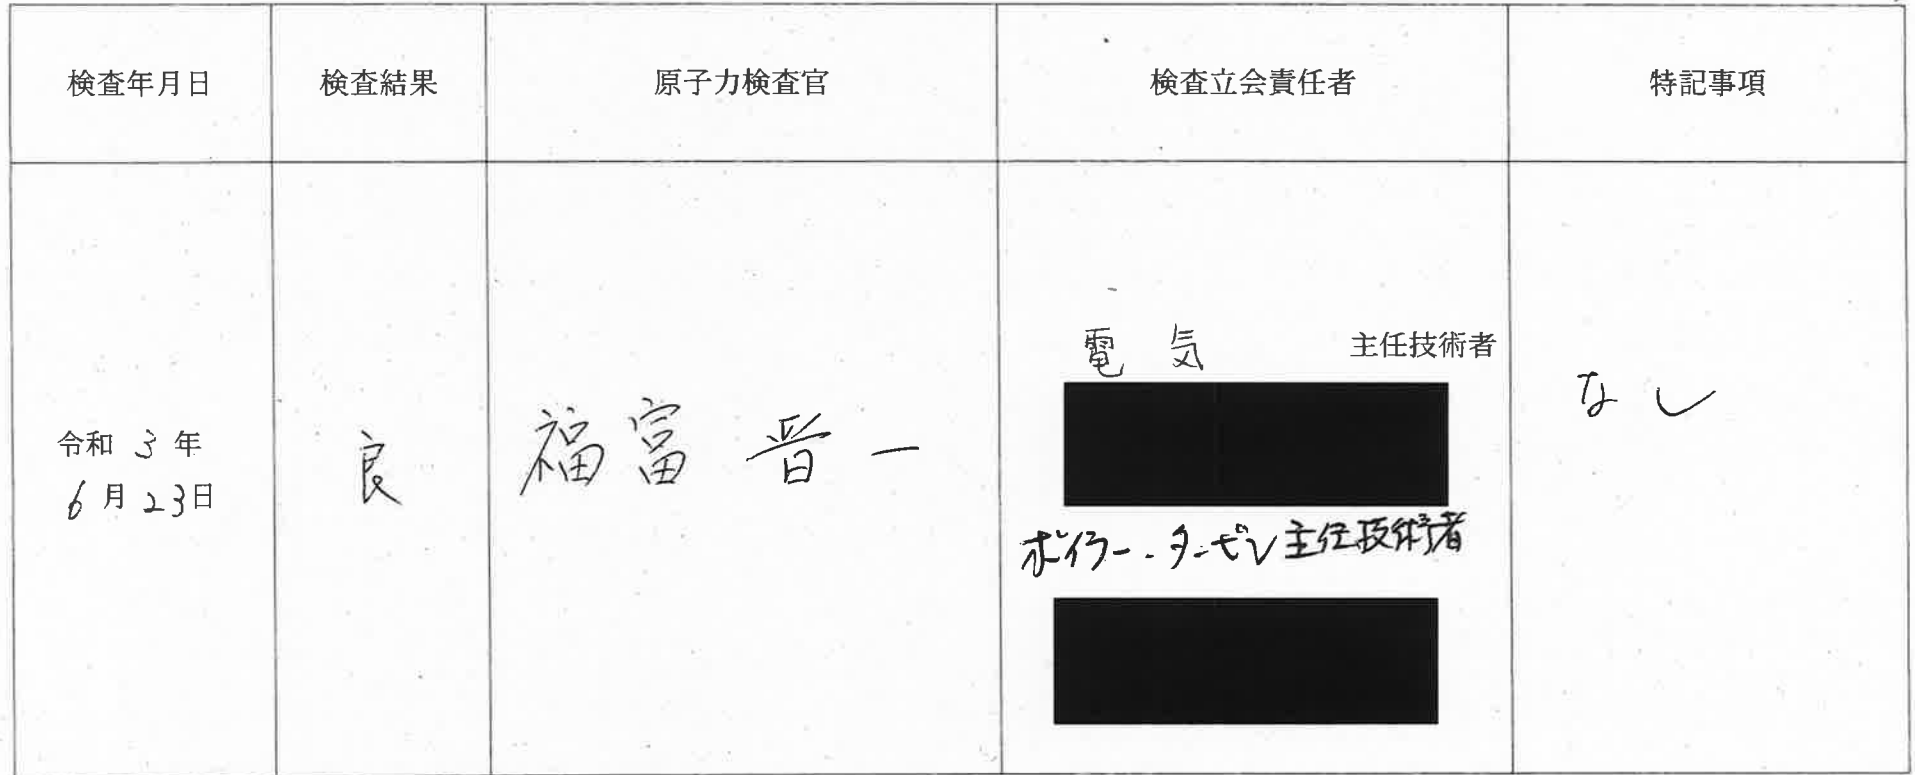 検査年月日
検査結果
原子力検査官
検査立会責任者
特記事項
令和 3 年
6 月 23日
良
福富 晋一
電気 主任技術者
ボイラー・タービン主任技術者
なし